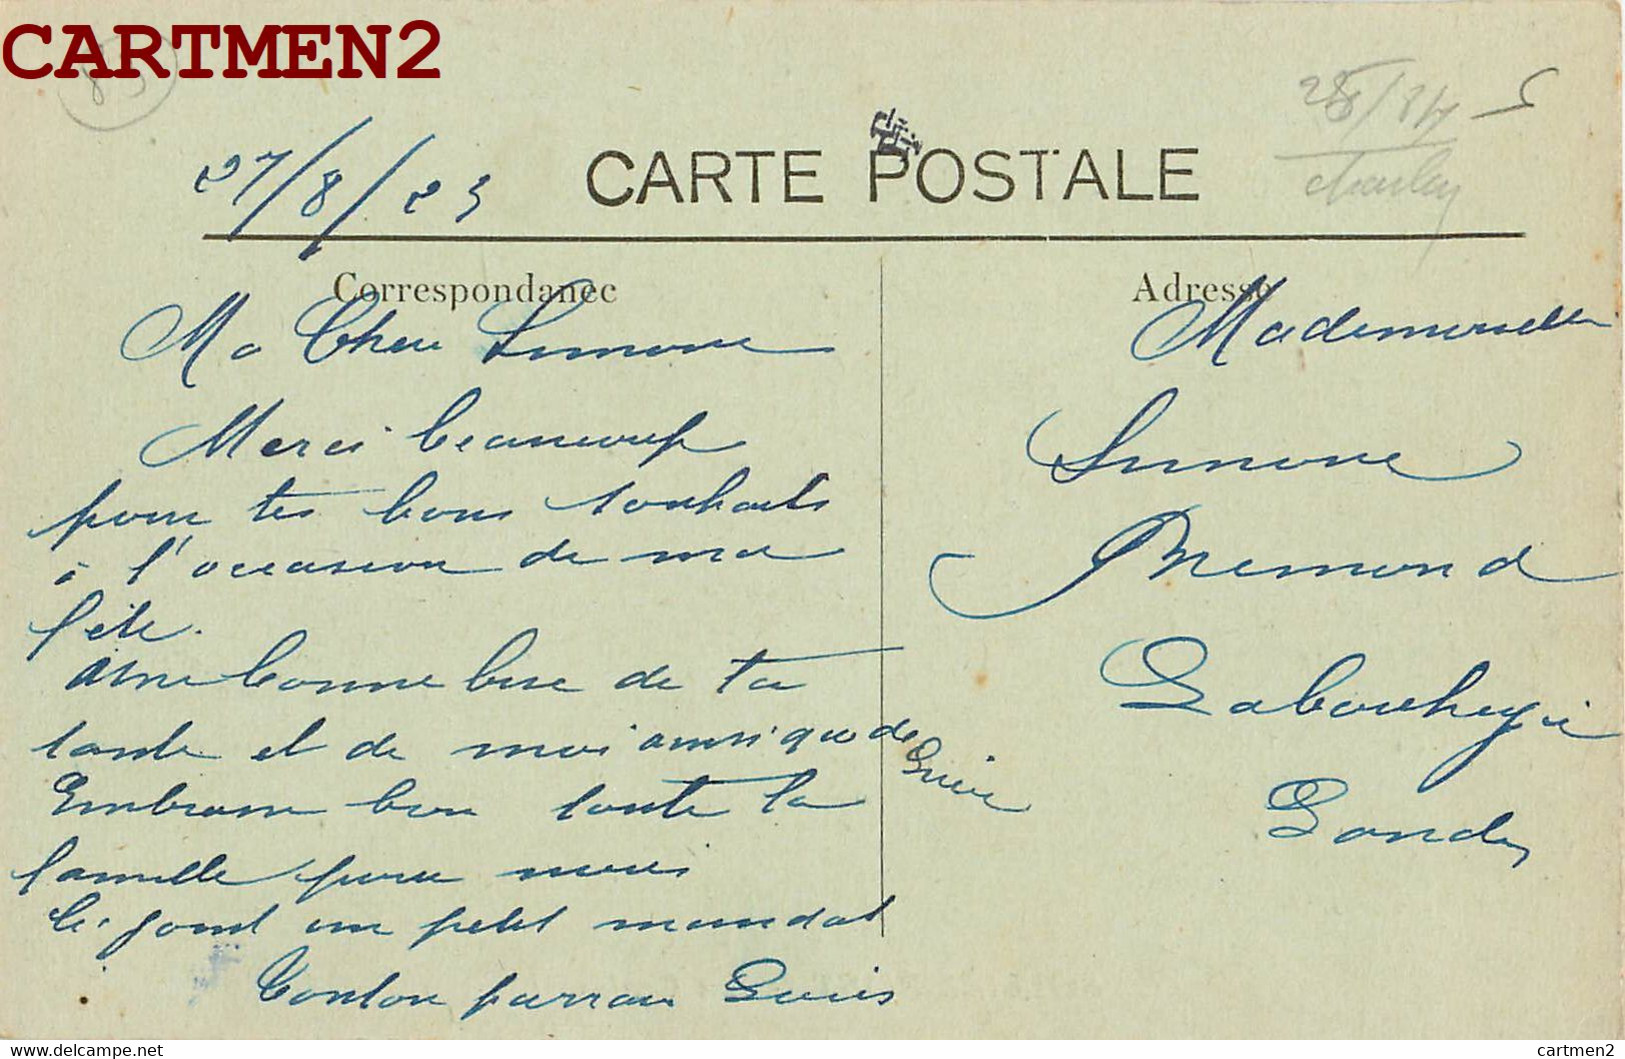 CARTMEN2
85
27/8/23
CARTE POSTALE
Correspondance
Ma Cher Simone
Merci beaucoup
pour tes bons souhaits
à l'occasion de ma
fête.
une bonne bise de ta
tante et de moi ainsi que de
Embrasse bien toute la
famille pour moi
ci joint un petit mandat
Tonton parrain Louis
Adresse
Mademoiselle
Simone
Labouheyre
Landes
www.delcampe.net
cartmen2